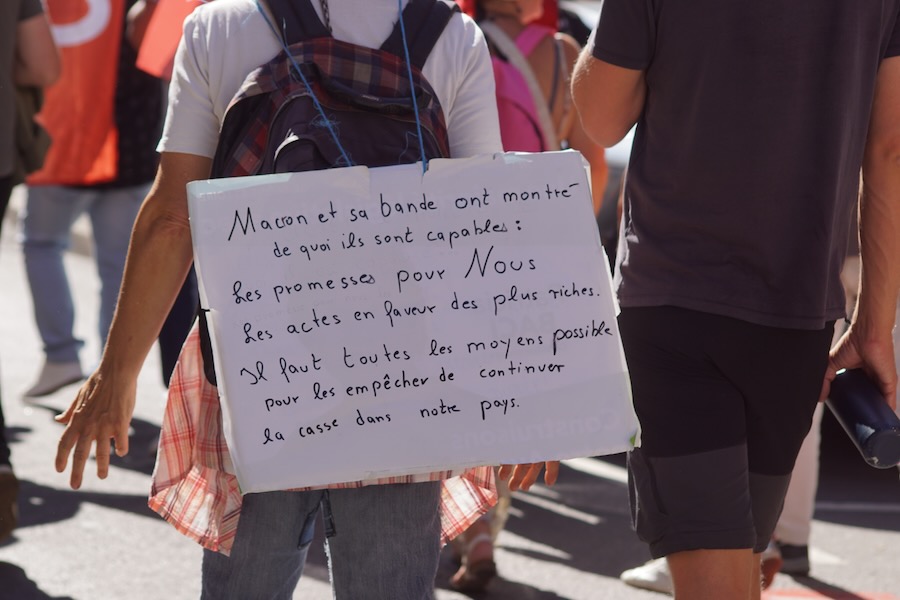 Macron et sa bande ont montré
de quoi ils sont capables :
Les promesses pour Nous
Les actes en faveur des plus riches.
Il faut toutes les moyens possible
pour les empêcher de continuer
la casse dans notre pays.